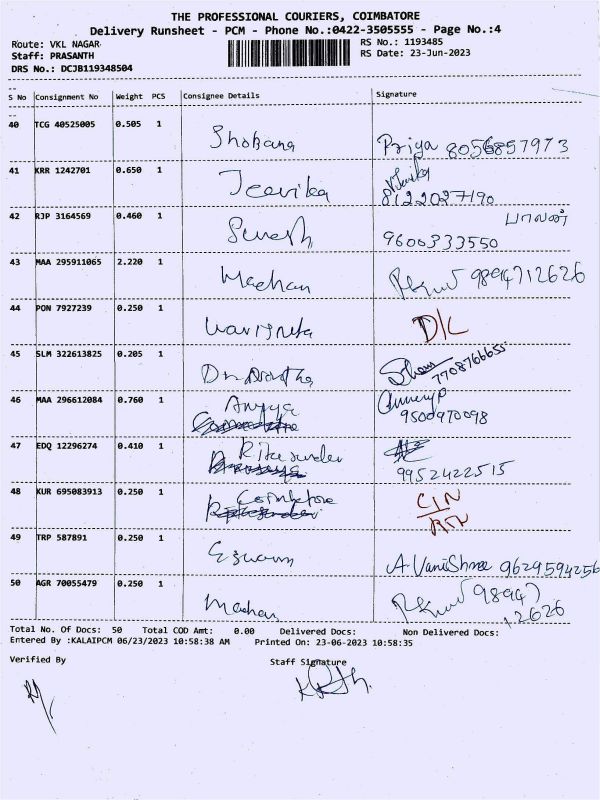 THE PROFESSIONAL COURIERS, COIMBATORE
Delivery Runsheet - PCM - Phone No.:0422-3505555 - Page No.:4
Route: VKL NAGAR
RS No.: 1193485
Staff: PRASANTH
RS Date: 23-Jun-2023
DRS No.: DCJB119348504
S No Consignment No Weight PCS Consignee Details Signature
40 TCG 40525005 0.505 1 Shobana Priya 8056857973
41 KRR 1242701 0.650 1 Jeevika 8122027190
42 RJP 3164569 0.460 1 Suresh பாலன்
9600333550
43 MAA 295911065 2.220 1 Madhan 9894712626
44 PON 7927239 0.250 1 D/L
45 SLM 322613825 0.205 1 7708766655
46 MAA 296612084 0.760 1 9500970098
47 EDQ 12296274 0.410 1 9952422515
48 KUR 695083913 0.250 1 Coimbatore
49 TRP 587891 0.250 1 Eswari A. VaniShree 9629594256
50 AGR 70055479 0.250 1 Madhan 98947
12626
Total No. Of Docs: 50 Total COD Amt: 0.00 Delivered Docs: Non Delivered Docs:
Entered By :KALAIPCM 06/23/2023 10:58:38 AM Printed On: 23-06-2023 10:58:35
Verified By Staff Signature